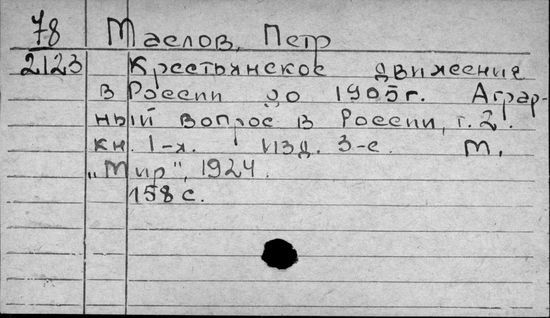 78 Маслов, Петр
2123 Крестьянское движение
в России до 1905г. Аграр-
ный вопрос в России, т. 2.
кн. 1-я. Изд. 3-е. М,
„Мир", 1924.
158 с.